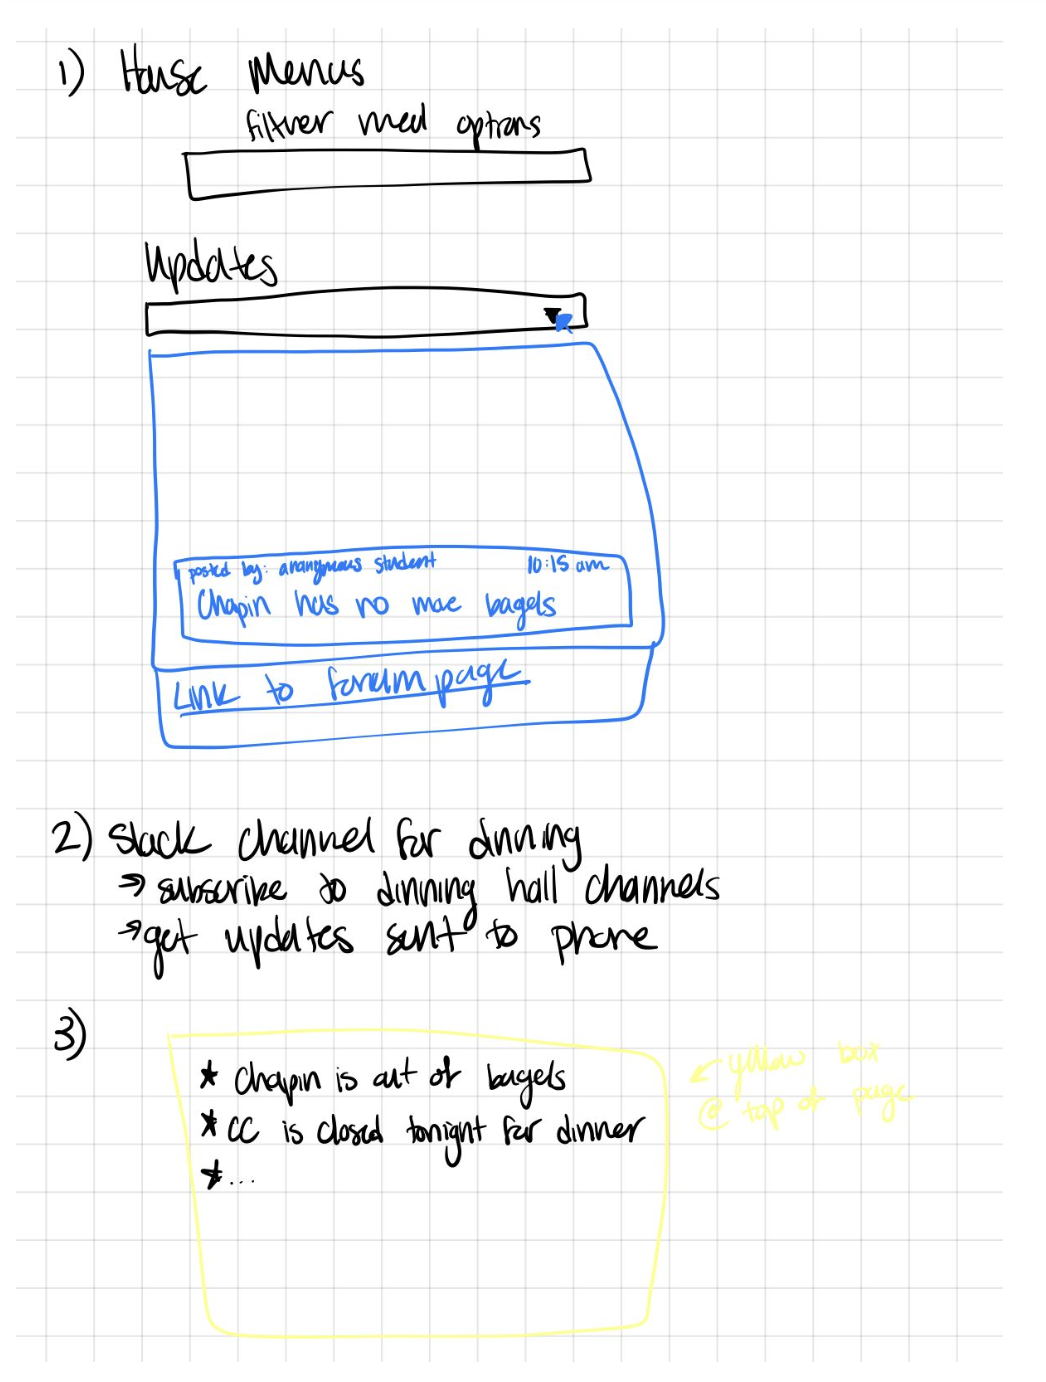 1) House Menus
filtner meal options
Updates
posted by: anangymous student 10:15 am
Chapin has no more bagels
Link to forum page
2) Slack channel for dinning
→ subscribe to dinning hall channels
→ get updates sent to phone
3)
* Chapin is out of bagels
* CC is closed tonight for dinner
* ...
← yellow box
@ top of page